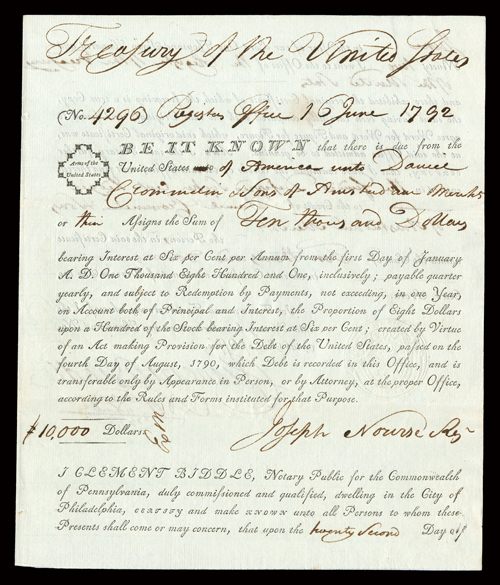 Treasury of the United States
(No. 4296) Register's Office 1 June 1792
BE IT KNOWN that there is due from the
Arms of the
United States
United States of America unto Daniel
Crommelin & Sons of Amsterdam Merchts
or their Assigns the Sum of Ten thousand Dollars
bearing Interest at Six per Cent per Annum from the first Day of January
A. D. One Thousand Eight Hundred and One, inclusively; payable quarter
yearly, and subject to Redemption by Payments, not exceeding, in one Year,
on Account both of Principal and Interest, the Proportion of Eight Dollars
upon a Hundred of the Stock bearing Interest at Six per Cent; created by Virtue
of an Act making Provision for the Debt of the United States, passed on the
fourth Day of August, 1790, which Debt is recorded in this Office, and is
transferable only by Appearance in Person, or by Attorney, at the proper Office,
according to the Rules and Forms instituted for that Purpose.
$10,000 Dollars
Joseph Nourse Regr
I CLEMENT BIDDLE, Notary Public for the Commonwealth
of Pennsylvania, duly commissioned and qualified, dwelling in the City of
Philadelphia, CERTIFY and make KNOWN unto all Persons to whom these
Presents shall come or may concern, that upon the twenty second Day of